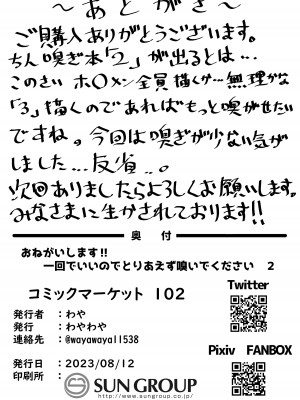 ～あとがき～
ご購入ありがとうございます。
ちん嗅ぎ本「2」が出るとは…
このさいホ○メン全員描くか…無理かな
「3」描くのであればもっと嗅がせたい
ですね。今回は嗅ぎが少ない気が
しました…反省…。
次回ありましたらよろしくお願いします。
みなさまに生かされております!!
奥 付
おねがいします!!
一回でいいのでとりあえず嗅いでください 2
コミックマーケット 102
Twitter
発行者 : わや
発行 : わやわや
連絡先 : @wayawaya11538
Pixiv FANBOX
発行日 : 2023/08/12
印刷所 : SUN GROUP
https://www.sungroup.co.jp/